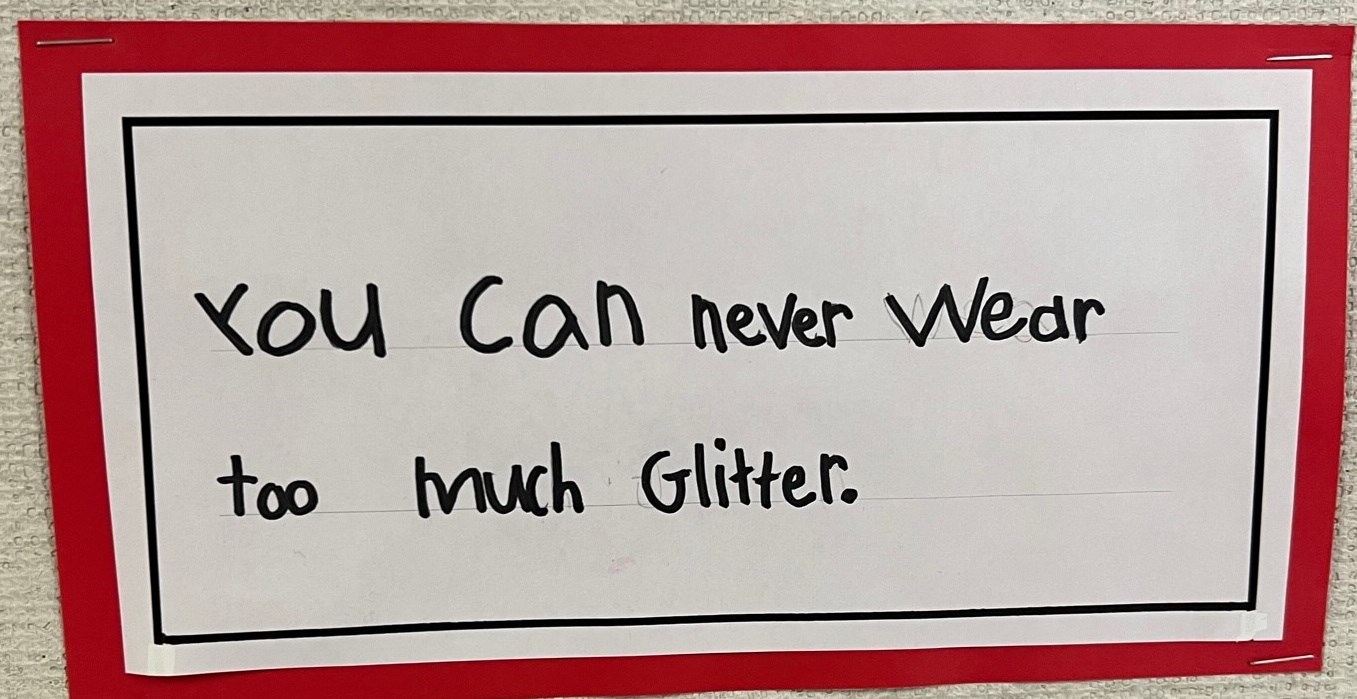 You Can never Wear
too much Glitter.